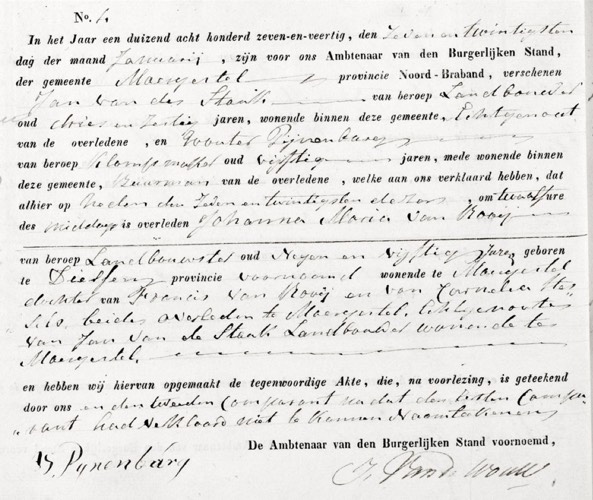 No. 4.
In het Jaar een duizend acht honderd zeven-en-veertig, den Zeven en twintigsten
dag der maand Januarij, zijn voor ons Ambtenaar van den Burgerlijken Stand,
der gemeente Moergestel provincie Noord-Braband, verschenen
Jan van der Staak van beroep Landbouwer
oud drie en zestig jaren, wonende binnen deze gemeente, Echtgenoot
van de overledene, en Wouter Pijnenburg
van beroep Klompmaker oud vijftig jaren, mede wonende binnen
deze gemeente, Buurman van de overledene, welke aan ons verklaard hebben, dat
alhier op heden den Zeven en twintigsten dezer, om twaalf ure
des middags is overleden Johanna Maria van Rooij
van beroep Landbouwster oud Negen en vijftig Jaren geboren
te Diessen provincie voornaamd wonende te Moergestel
dochter van Francis van Rooij en van Cornelia
beiden overleden te Moergestel, Echtgenoote
van Jan van de Staak Landbouwer wonende te
Moergestel.
en hebben wij hiervan opgemaakt de tegenwoordige Akte, die, na voorlezing, is geteekend
door ons en den tweeden Comparant na dat den eersten Compa„
„rant had verklaard niet te kunnen Naamtekenen
De Ambtenaar van den Burgerlijken Stand voornoemd,
W. Pynenbúrg